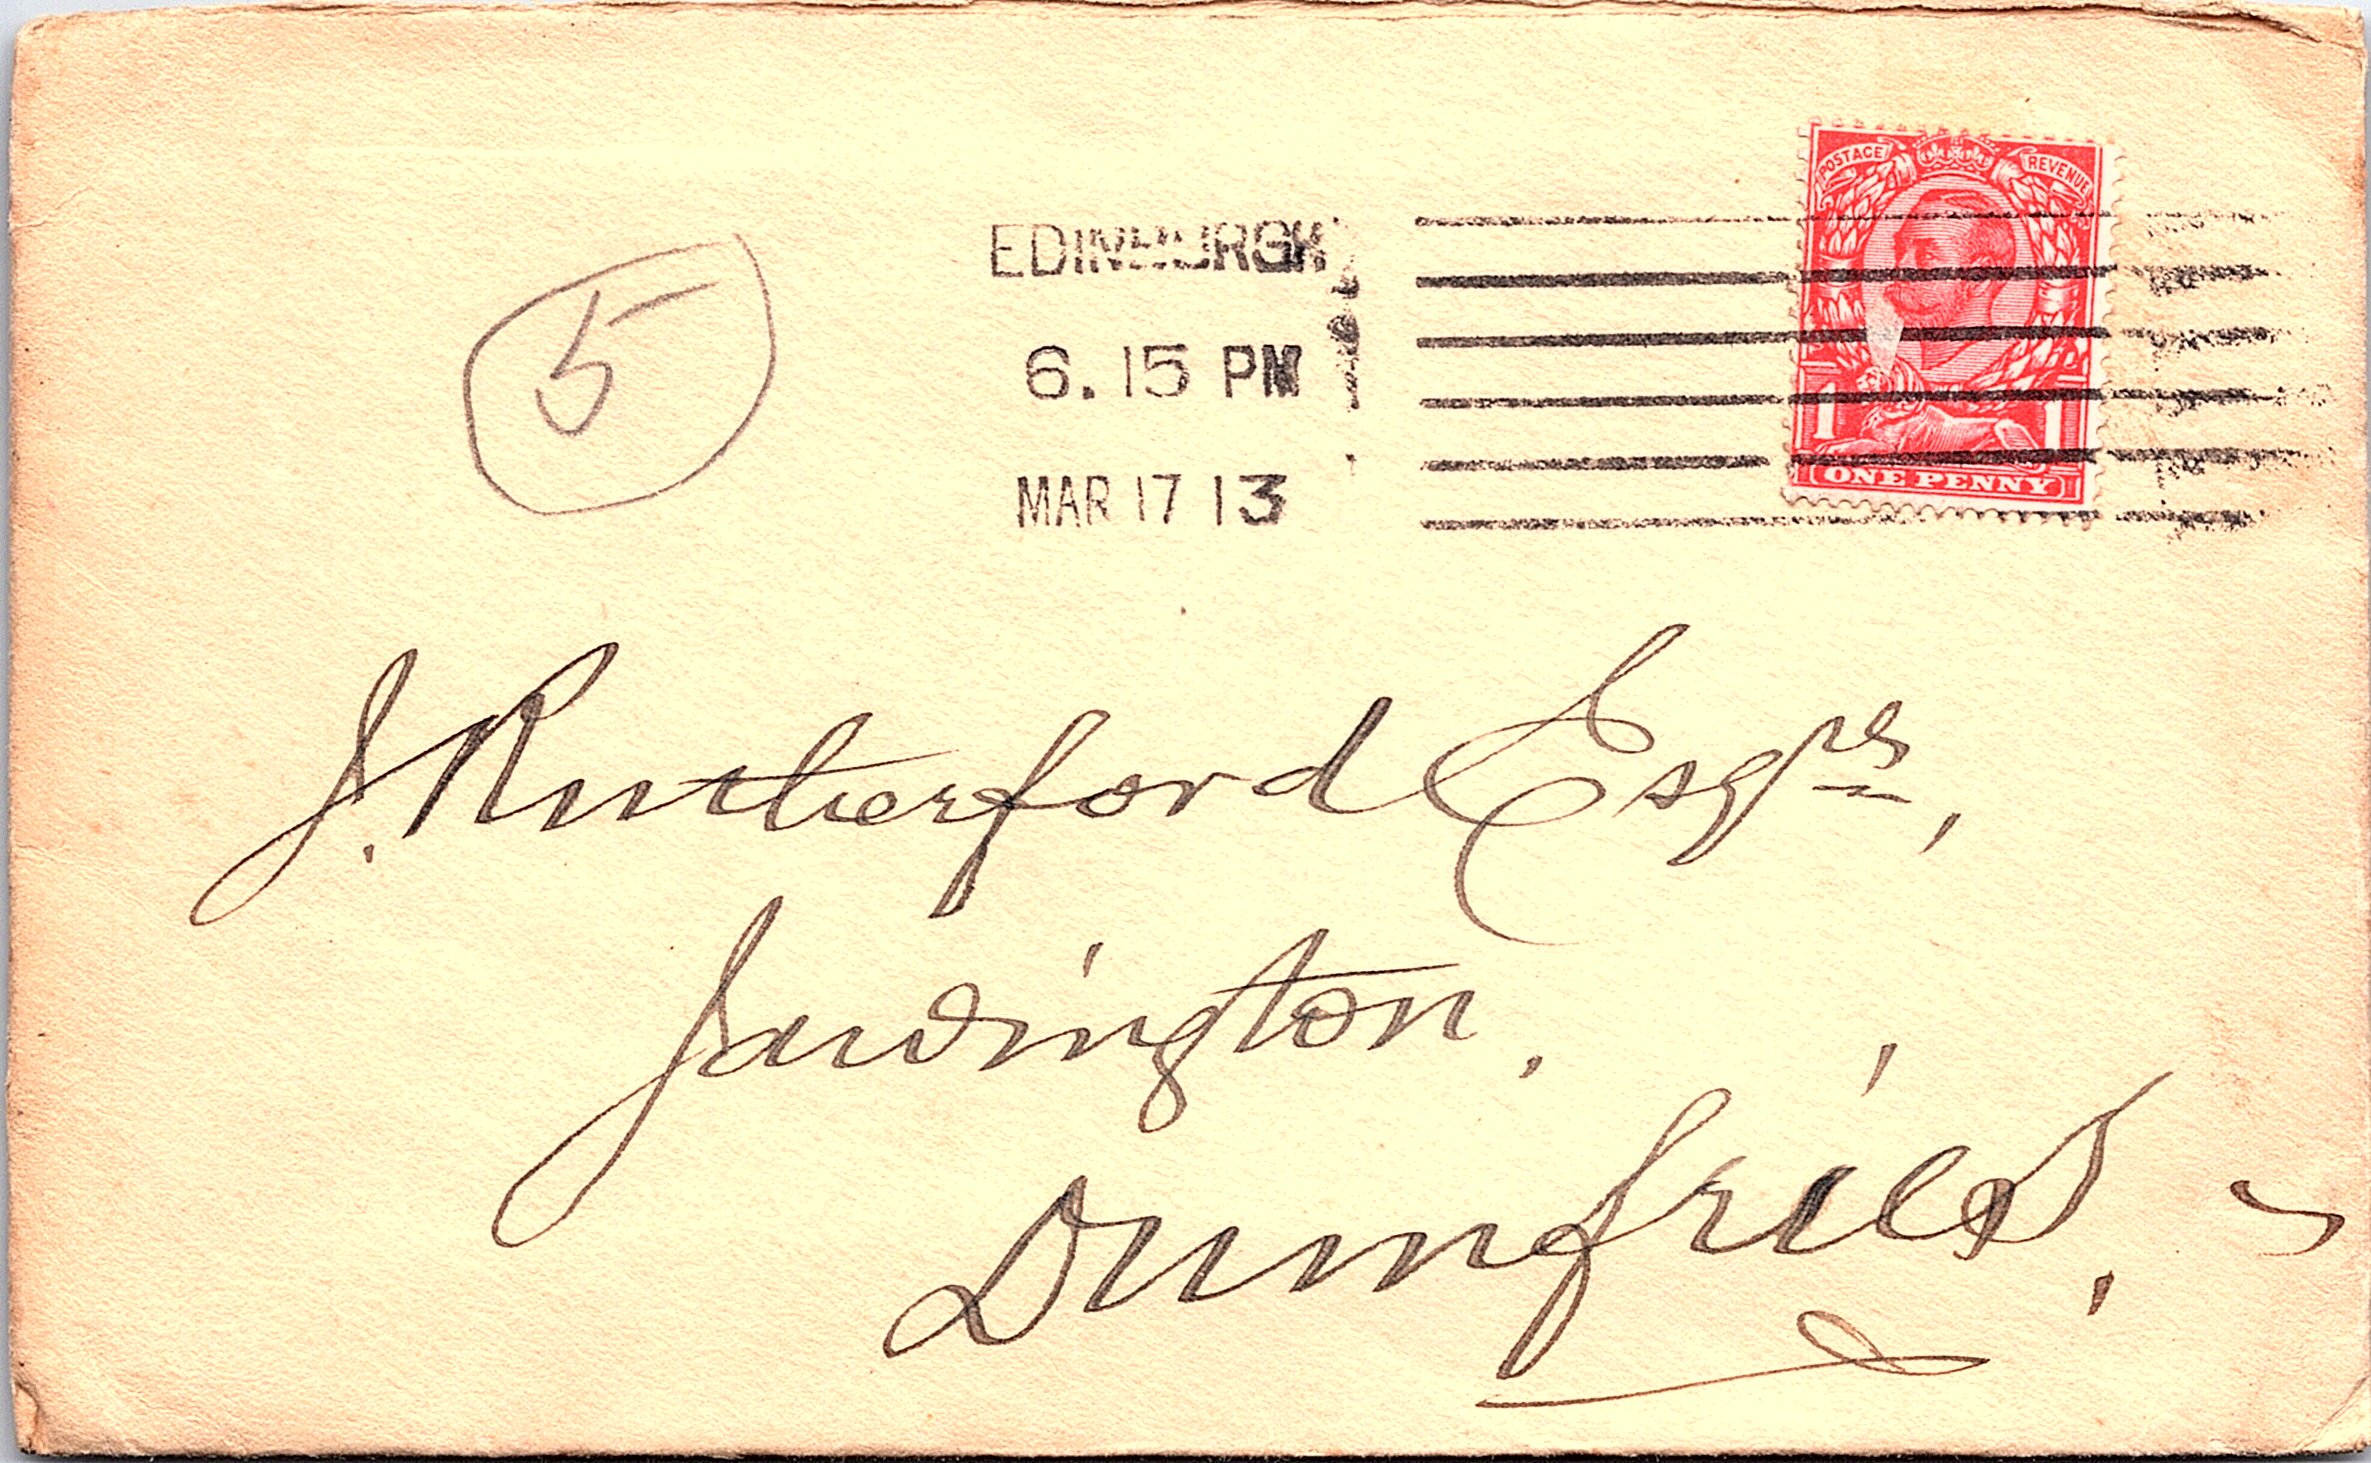 POSTAGE REVENUE
EDINBURGH
6.15 PM
MAR 17 13
1 1
ONE PENNY
5
J. Rutherford Esqre,
Jardington.
Dumfries.